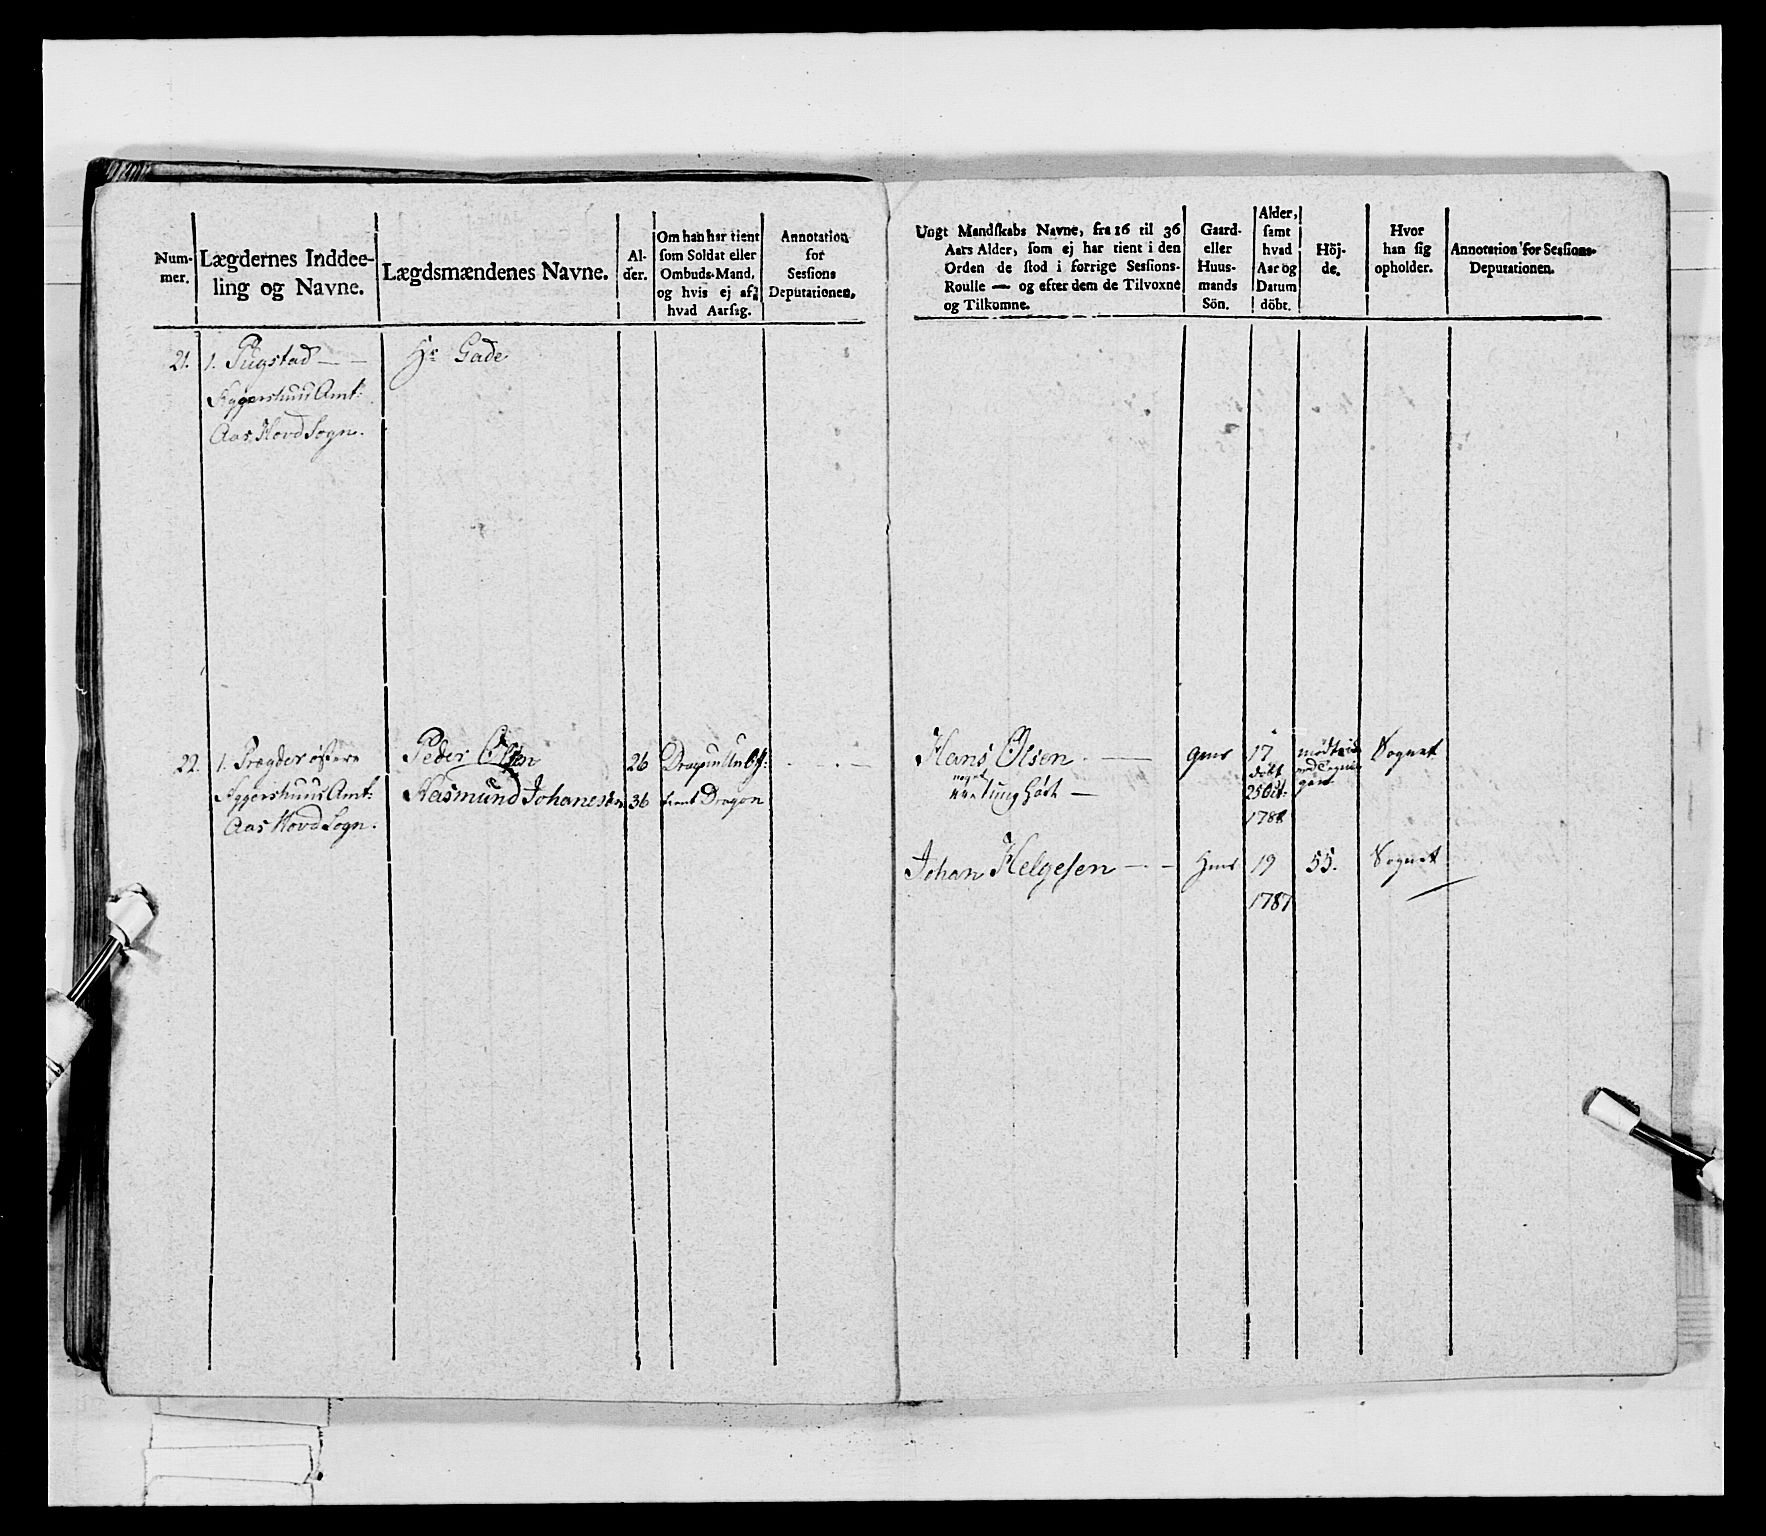 Num-
mer.
Lægdernes Inddee-
ling og Navne.
Lægdsmændenes Navne.
Al-
der.
Om han har tient
som Soldat eller
Ombuds-Mand,
og hvis ej af
hvad Aarsag.
Annotation
for
Sessions
Deputationen.
Ungt Mandskabs Navne, fra 16 til 36
Aars Alder, som ej har tient i den
Orden de stod i forrige Sessions-
Roulle — og efter dem de Tilvoxne
og Tilkomne.
Gaard-
eller
Huus-
mands
Sön.
Alder,
samt
hvad
Aar og
Datum
döbt.
Höj-
de.
Hvor
han sig
opholder.
Annotation for Sessions-
Deputationen.
21. 1. Pugstad — — Hr Gade
Aggershuus Amt:
Aas Hovd Sogn.
22. 1. Østere Peder Olsen 26 Dragun
Aggershuus Amt: Aasmund Johanesen 36 tient Dragon
Aas Hovd Sogn.
Hans Olsen — Gms 17 Sognet
noget tunghört — döbt
25 Oct:
1788
Johan Helgesen — — Hms 19 55. Sognet
1787